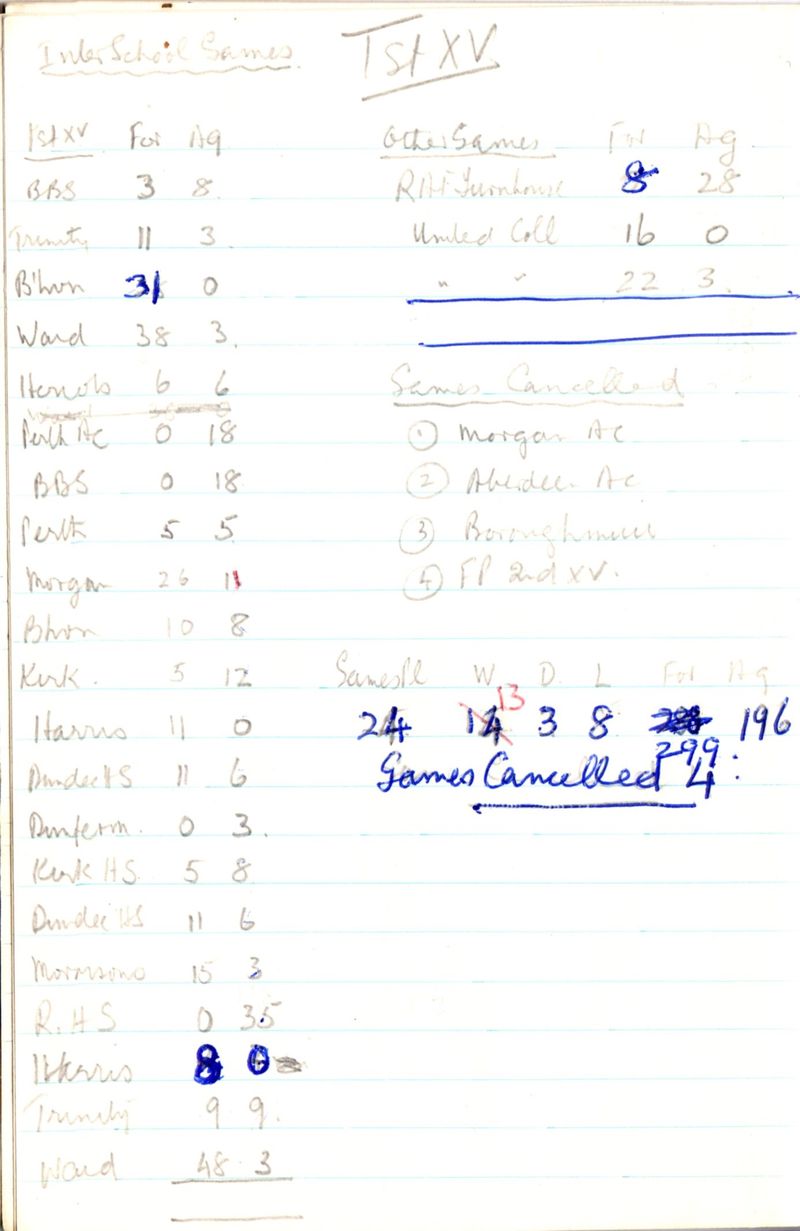 InterSchool Games
1st XV
1st XV For Ag
BBS 3 8
Trinity 11 3
B'hon 31 0
Ward 38 3.
Heriots 6 6
Perth Ac 0 18
BBS 0 18
Perth 5 5
Morgan 26 11
Bhon 10 8
Kirk. 5 12
Harris 11 0
Dundee HS 11 6
Dunferm. 0 3.
Kirk HS 5 8
Dundee HS 11 6
Morrisons 15 3
R.H S 0 35
Harris 8 0
Trinity 9 9.
Ward 48 3
Other Games For Ag
RAF Turnhouse 8 28
United Coll 16 0
" " 22 3.
Games Cancelled
① Morgan Ac
② Aberdeen Ac
③ Boroughmuir
④ FP 2nd XV.
Games Pl W D. L For Ag
24 14 13 3 8 299 196
Games Cancelled 4: